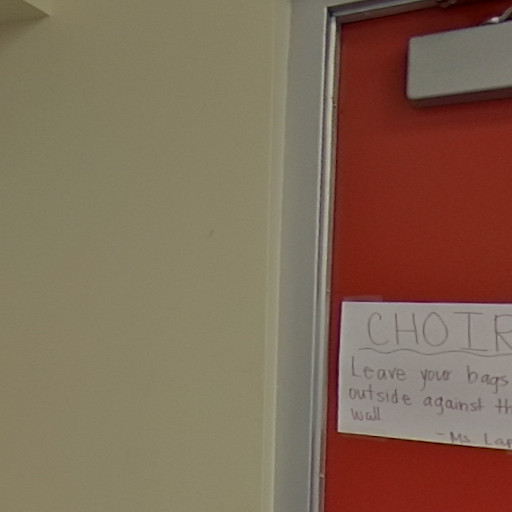 CHOIR
Leave your bags
outside against
wall
- Ms.